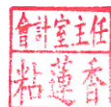 會計室主任
粘蓮香